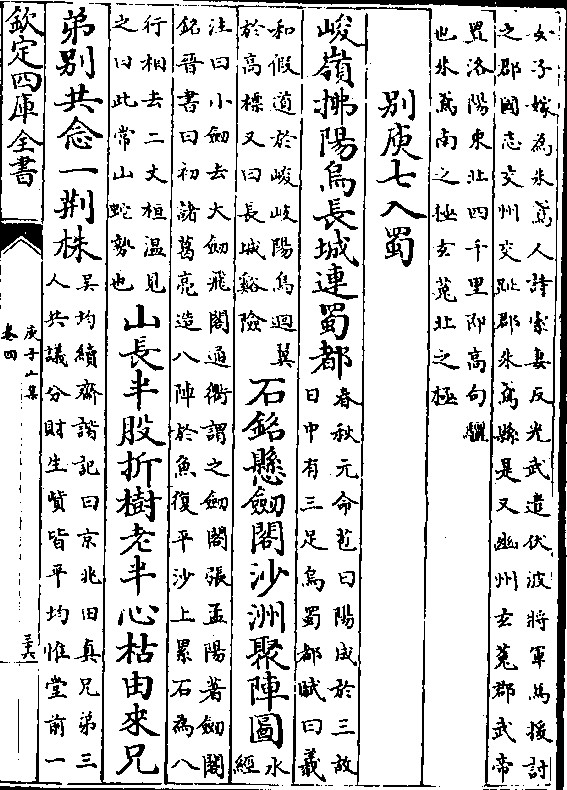 女子嫁為朱鳶人詩索妻反光武遣伏波將軍馬援討
之郡國志交州交趾郡朱鳶縣是又幽州玄菟郡武帝
置洛陽東北四千里即高句驪
也朱鳶南之極玄菟北之極
別庾七入蜀
峻嶺拂陽烏長城連蜀都
春秋元命苞曰陽成於三故
日中有三足烏蜀都賦曰羲
和假道於峻岐陽烏迴翼
於高標又曰長城谿險
石銘懸劒閣沙洲聚陣圖
水
經
注曰小劒去大劒飛閣通衢謂之劒閣張孟陽著劒閣
銘晉書曰初諸葛亮造八陣於魚復平沙上累石為八
行相去二丈桓温見
之曰此常山蛇勢也
山長半股折樹老半心枯由來兄
弟别共念一荆株
吴均續齊諧記曰京兆田真兄弟三
人共議分財生貲皆平均惟堂前一
欽定四庫全書
庾子山集
卷四
三六